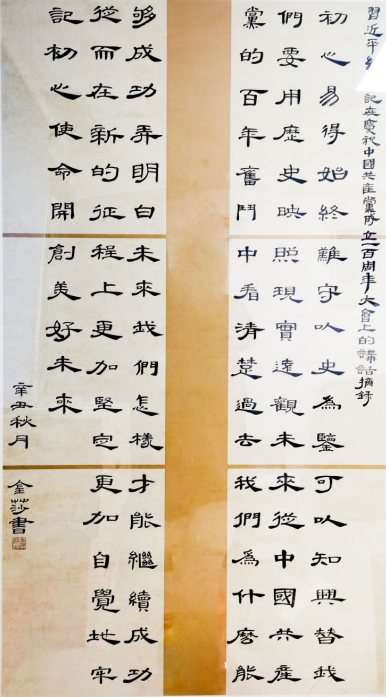 習近平總 記在慶祝中國共產黨成立一百周年大會上的講話摘錄
初心易得始終難守以史為鑒可以知興替我
們要用歷史映照現實遠觀未來從中國共產
黨的百年奮鬥中看清楚過去我們為什麼能
够成功弄明白未來我們怎樣才能繼續成功
從而在新的征程上更加堅定更加自覺地牢
記初心使命開創美好未來
辛丑秋月 金莎書